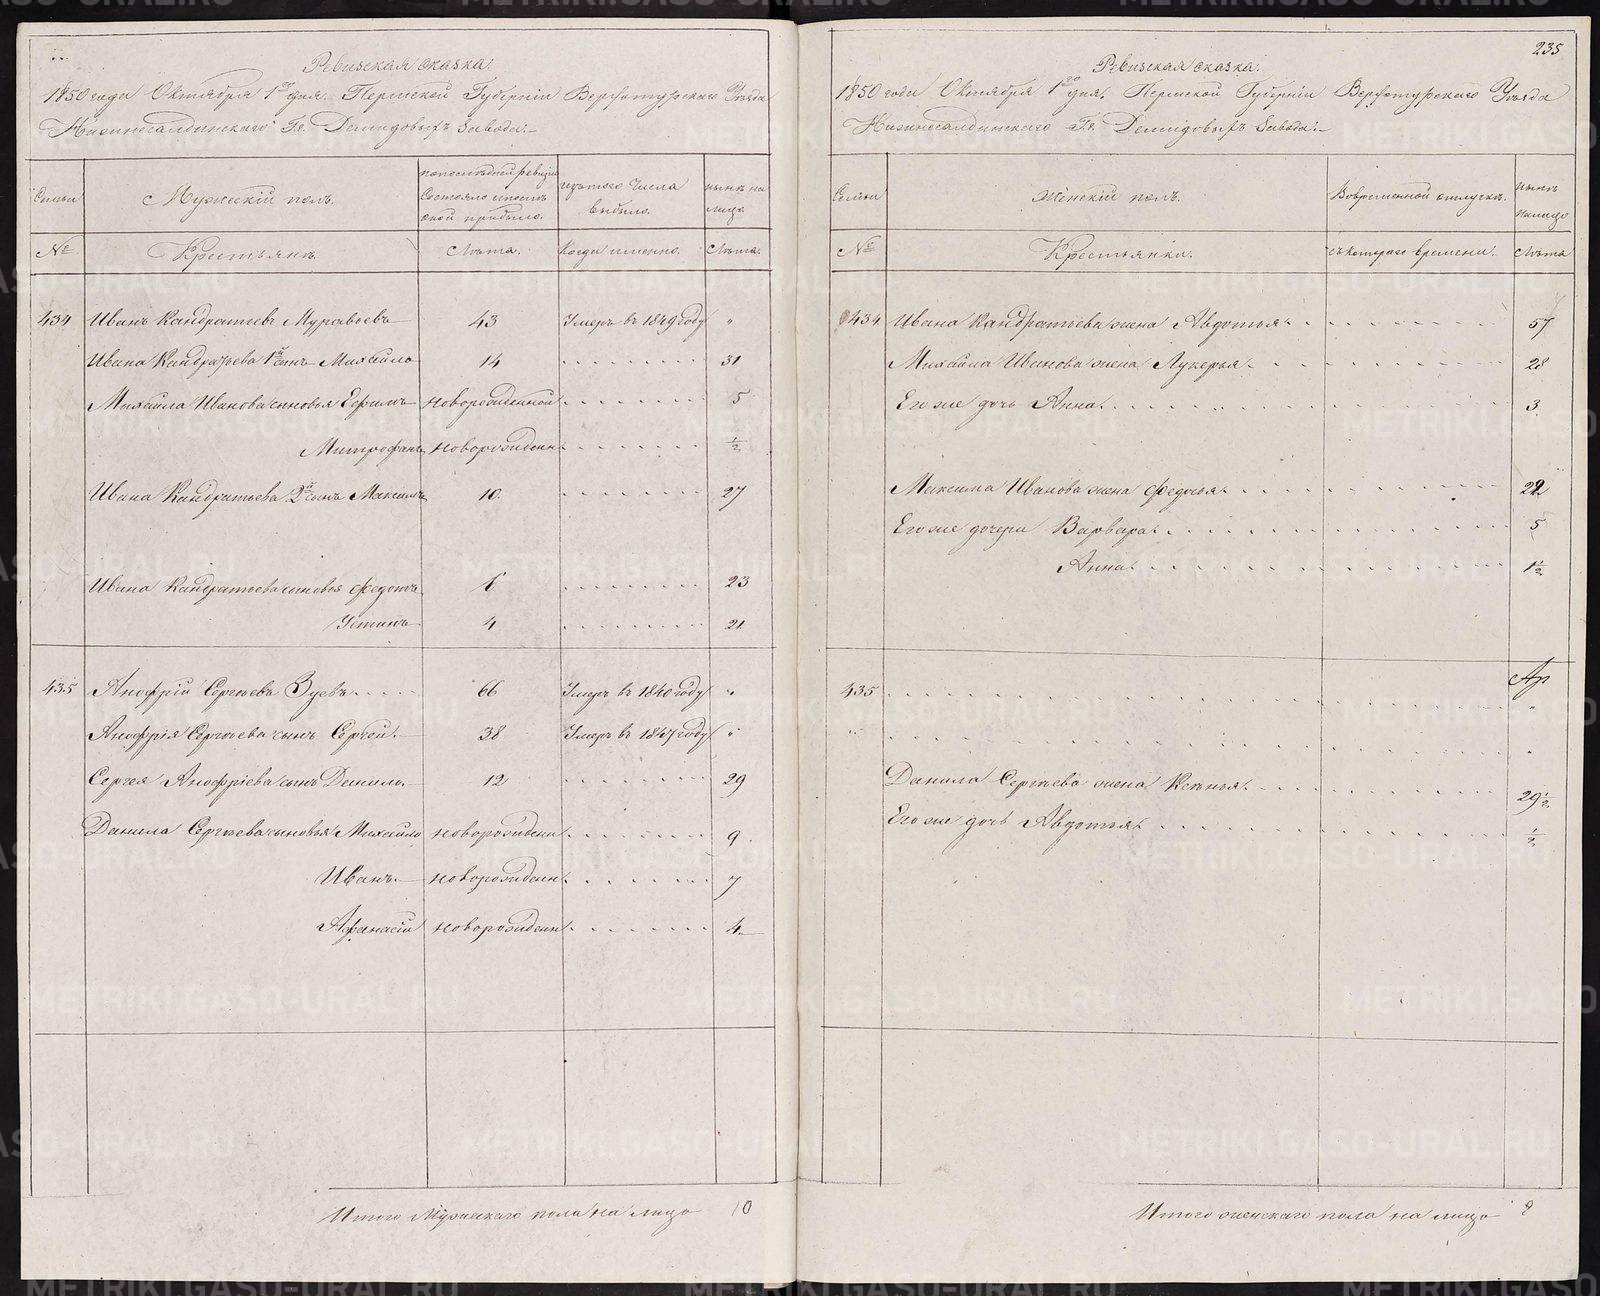 Ревизская сказка.
1850 года Октября 1го дня. Пермской Губернiи Верхотурского Уезда
Нижнесалдинского Гг. Демидовыхъ Завода.
Семьи
Мужескiй полъ.
по последней ревизiи состояло и после оной прибыло.
изъ того числа выбыло.
ныне на лицо.
№
Крестьянъ.
Лѣта.
Когда именно.
Лѣта.
434 Иванъ Кандратьевъ Муравьевъ 43 Умеръ въ 1849 году "
Ивана Кандратьева 1й сынъ Михайло 14 31
Михайла Иванова сыновья Ефимъ новорожденной 5
Митрофанъ новорожденн ½
Ивана Кандратьева 2й сынъ Максимъ 10 27
Ивана Кандратьева сыновья Федотъ 6 23
Устинъ 4 21
435 Анофрiй Сергѣевъ Зуевъ 66 Умеръ въ 1840 году "
Анофрiя Сергѣева сынъ Сергей 38 Умеръ въ 1847 году "
Сергея Анофрiева сынъ Данило 12 29
Данила Сергѣева сыновья Михайло новорожденн 9
Иванъ новорожденн 7
Афанасiй новорожденн 4
Итого Мужескаго пола на лицо 10
235
Ревизская сказка.
1850 года Октября 1го дня. Пермской Губернiи Верхотурского Уезда
Нижнесалдинского Гг. Демидовыхъ Завода.
Семьи
Женскiй полъ.
Во временной отлучкѣ.
ныне на лицо
№
Крестьянки.
съ которого времени.
Лѣта
434 Ивана Кандратьева жена Авдотья 57
Михайла Иванова жена Лукерья 28
Его же дочь Анна 3
Максима Иванова жена Федосья 29
Его же дочери Варвара 5
Анна 1½
435
Данила Сергѣева жена Ксенья 29½
Его же дочь Авдотья ½
Итого женскаго пола на лицо 8
METRIKI.GASO-URAL.RU